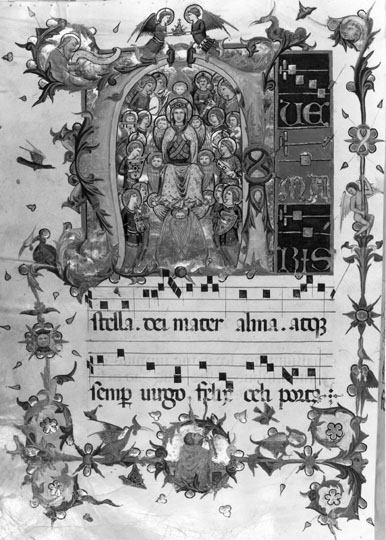 AUE
MA
RIS
stella. dei mater alma. atqꝫ
semp uirgo. felix celi porta